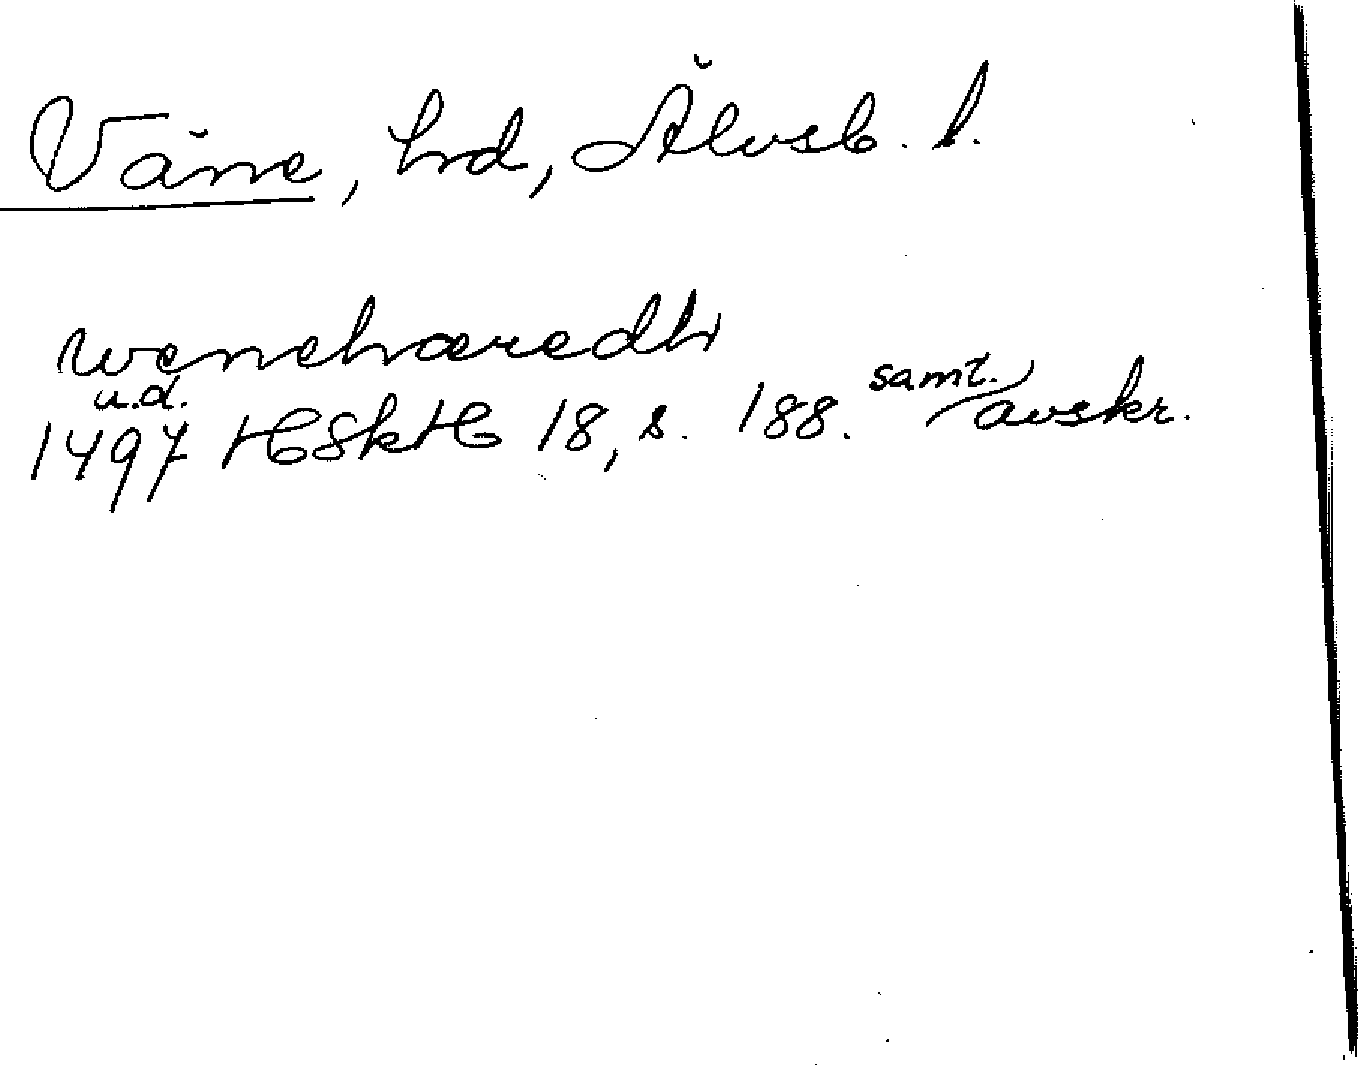 Väne, hrd, Älvsb. l.
wenehæredh
u.d.
1497 HSkH 18, s. 188. samt. avskr.